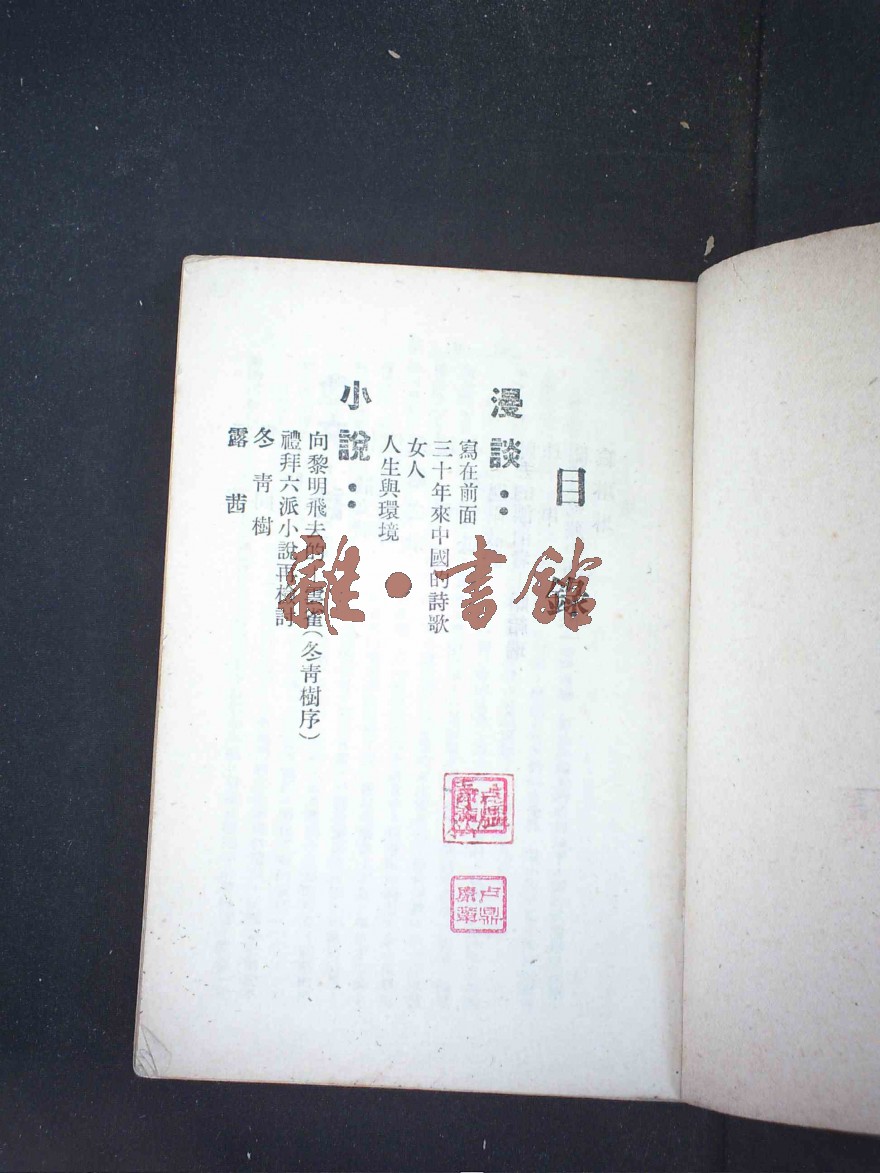 目錄
漫談：
寫在前面
三十年來中國的詩歌
女人
人生與環境
小說：
向黎明飛去的小雲雀（冬靑樹序）
禮拜六派小說再檢討
冬靑樹
露茜
雜·書館
卢鼎